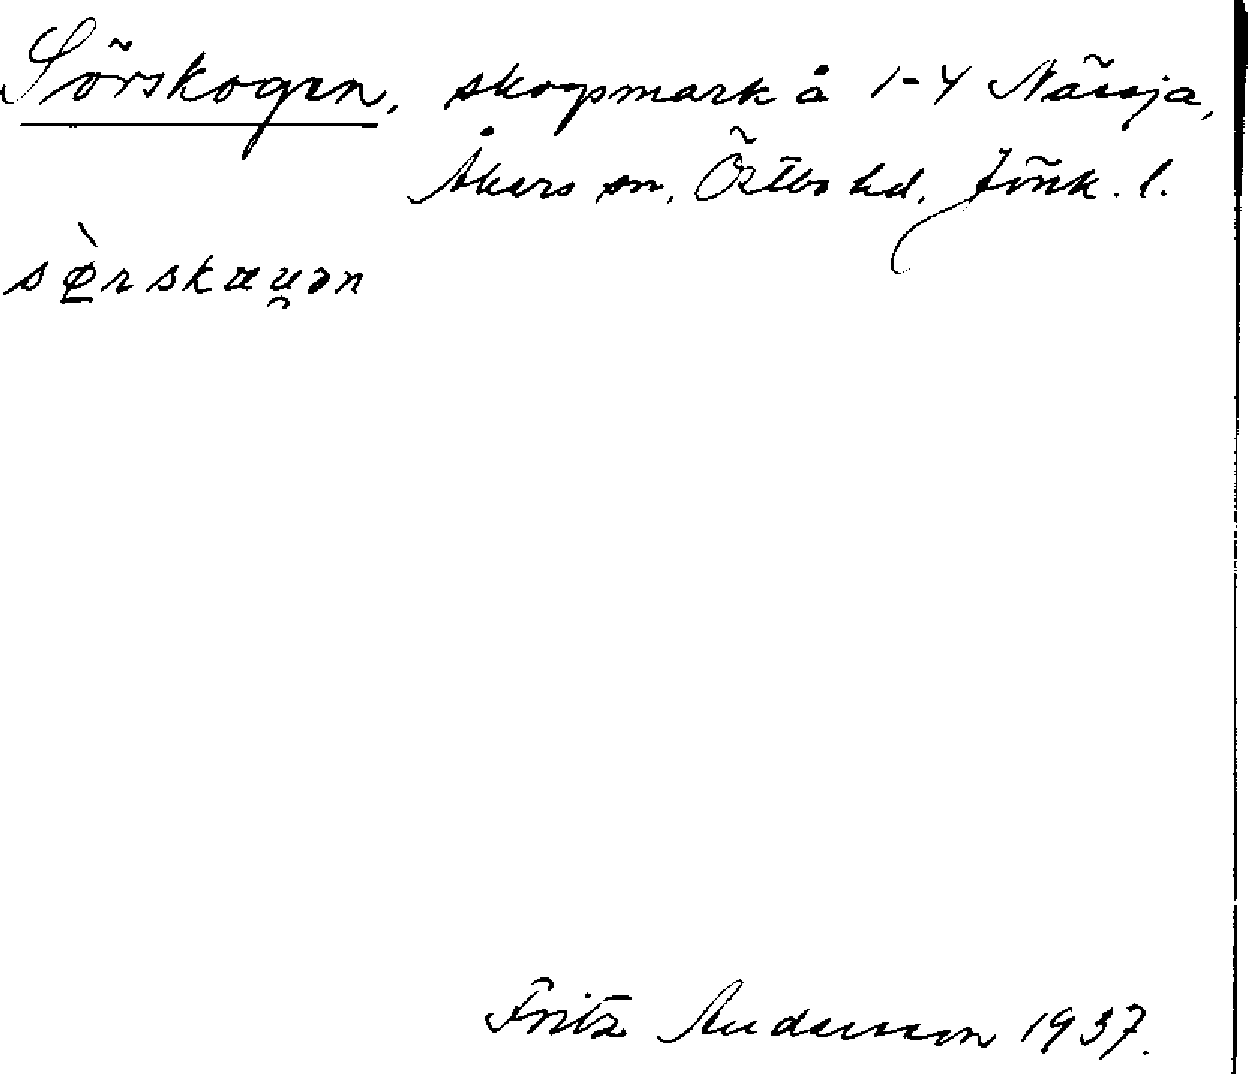 Sörskogen, skogsmark å 1-4 Nässja,
Åkers sn, Östbo hd, Jönk. l.
sø̠̀rskæu̯ən
Fritz Andersson 1937.